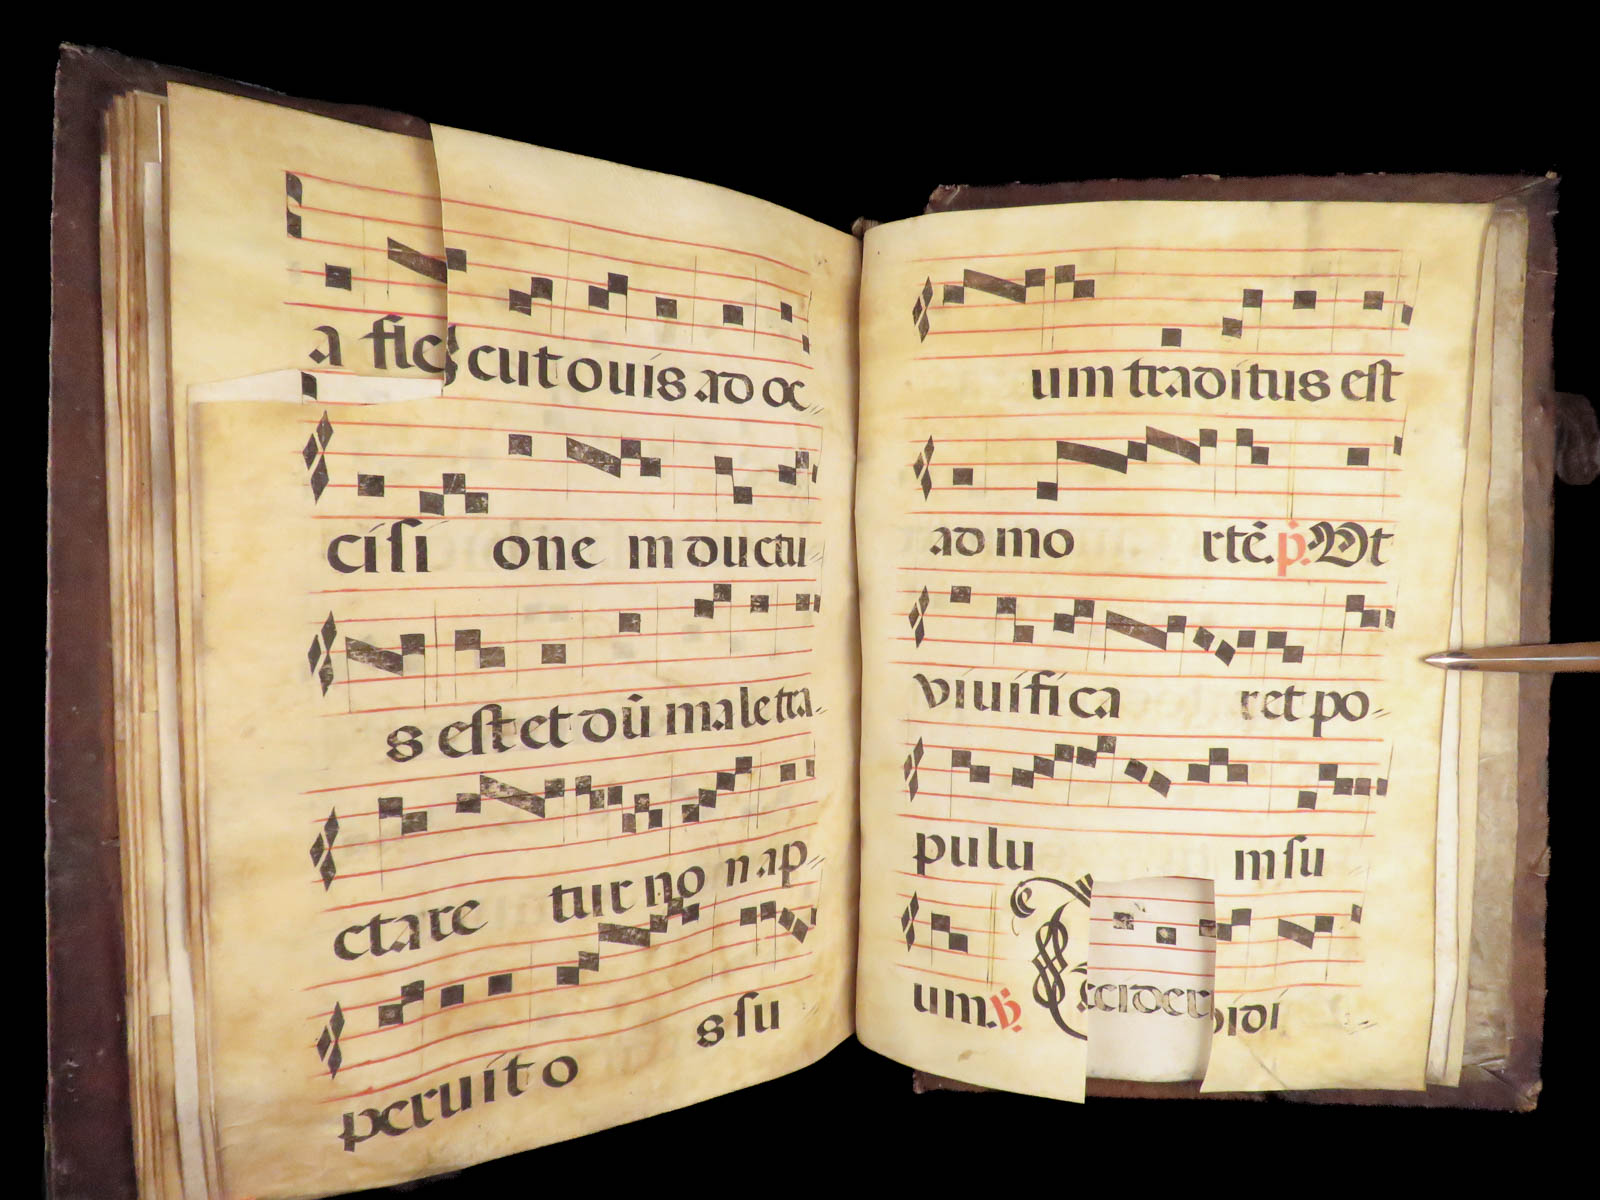 a sic
cut ouis ad oc-
cisi one m ductu
s est et dū male tra-
ctare tur no n ap-
peruit o s su
um traditus est
ad mo rtē. p. Ut
viuifi ca ret po-
pulu m su
um. ℣.